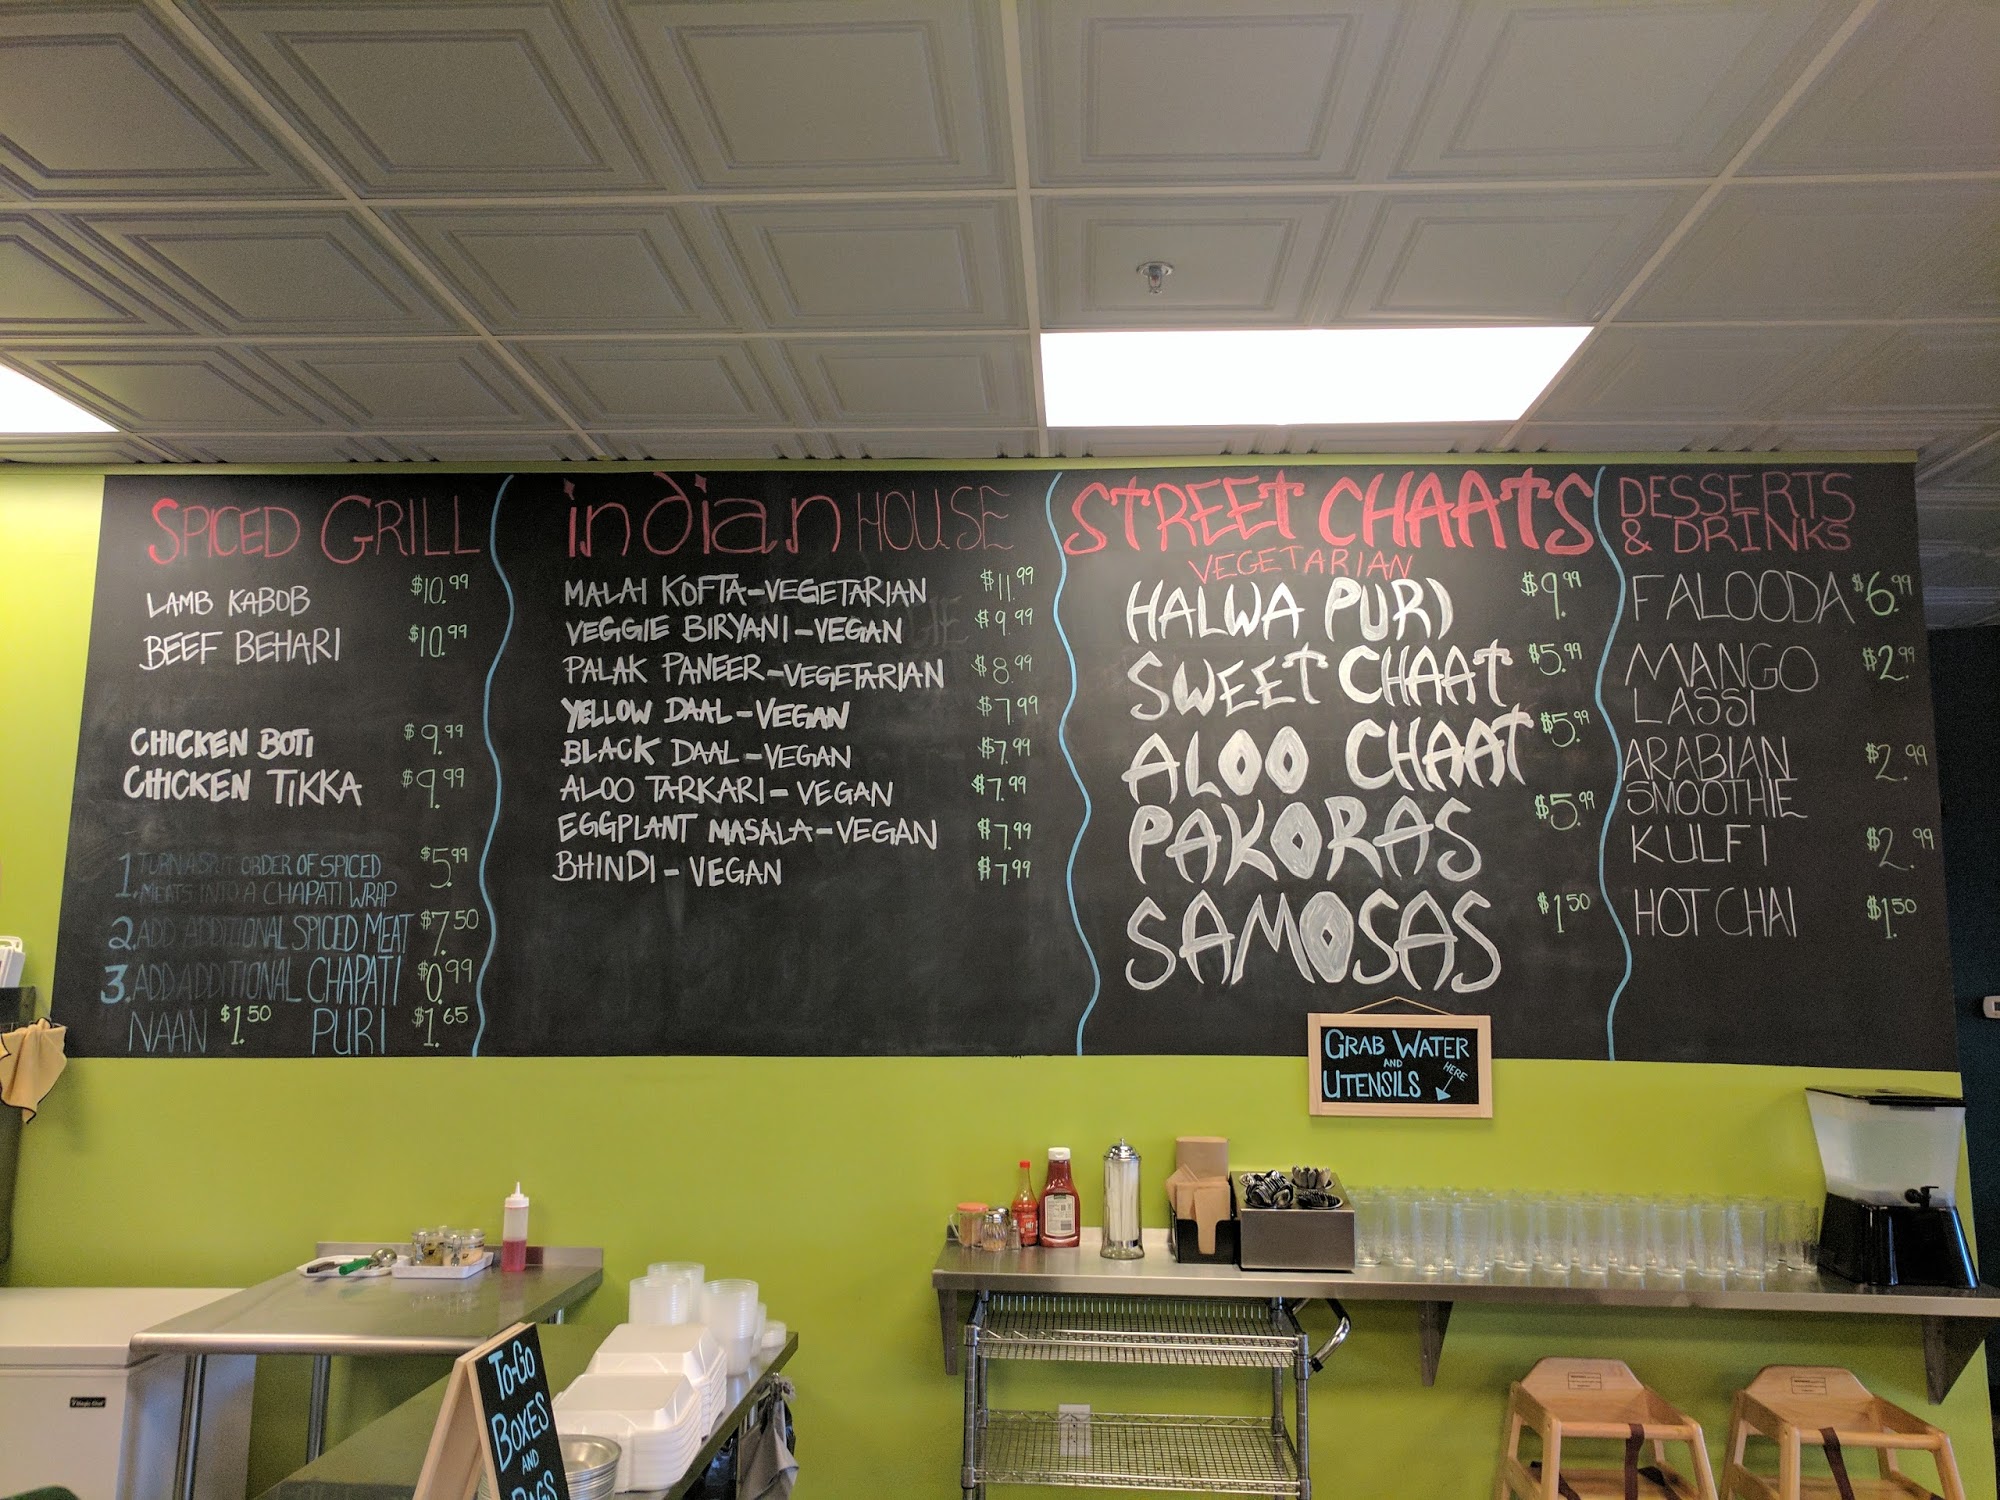 SPICED GRILL
LAMB KABOB $10.99
BEEF BEHARI $10.99
CHICKEN BOTI $9.99
CHICKEN TIKKA $9.99
1. TURN A SPLIT ORDER OF SPICED $5.99
MEATS INTO A CHAPATI WRAP
2. ADD ADDITIONAL SPICED MEAT $7.50
3. ADD ADDITIONAL CHAPATI $0.99
NAAN $1.50 PURI $1.65
indian HOUSE
MALAI KOFTA-VEGETARIAN $11.99
VEGGIE BIRYANI-VEGAN $9.99
PALAK PANEER-VEGETARIAN $8.99
YELLOW DAAL-VEGAN $7.99
BLACK DAAL-VEGAN $7.99
ALOO TARKARI-VEGAN $7.99
EGGPLANT MASALA-VEGAN $7.99
BHINDI-VEGAN $7.99
STREET CHAATS
VEGETARIAN
HALWA PURI $9.99
SWEET CHAAT $5.99
ALOO CHAAT $5.99
PAKORAS $5.99
SAMOSAS $1.50
DESSERTS
& DRINKS
FALOODA $6.99
MANGO $2.99
LASSI
ARABIAN $2.99
SMOOTHIE
KULFI $2.99
HOT CHAI $1.50
GRAB WATER
AND
UTENSILS HERE
TO-GO
BOXES
AND
BAGS
Magic Chef